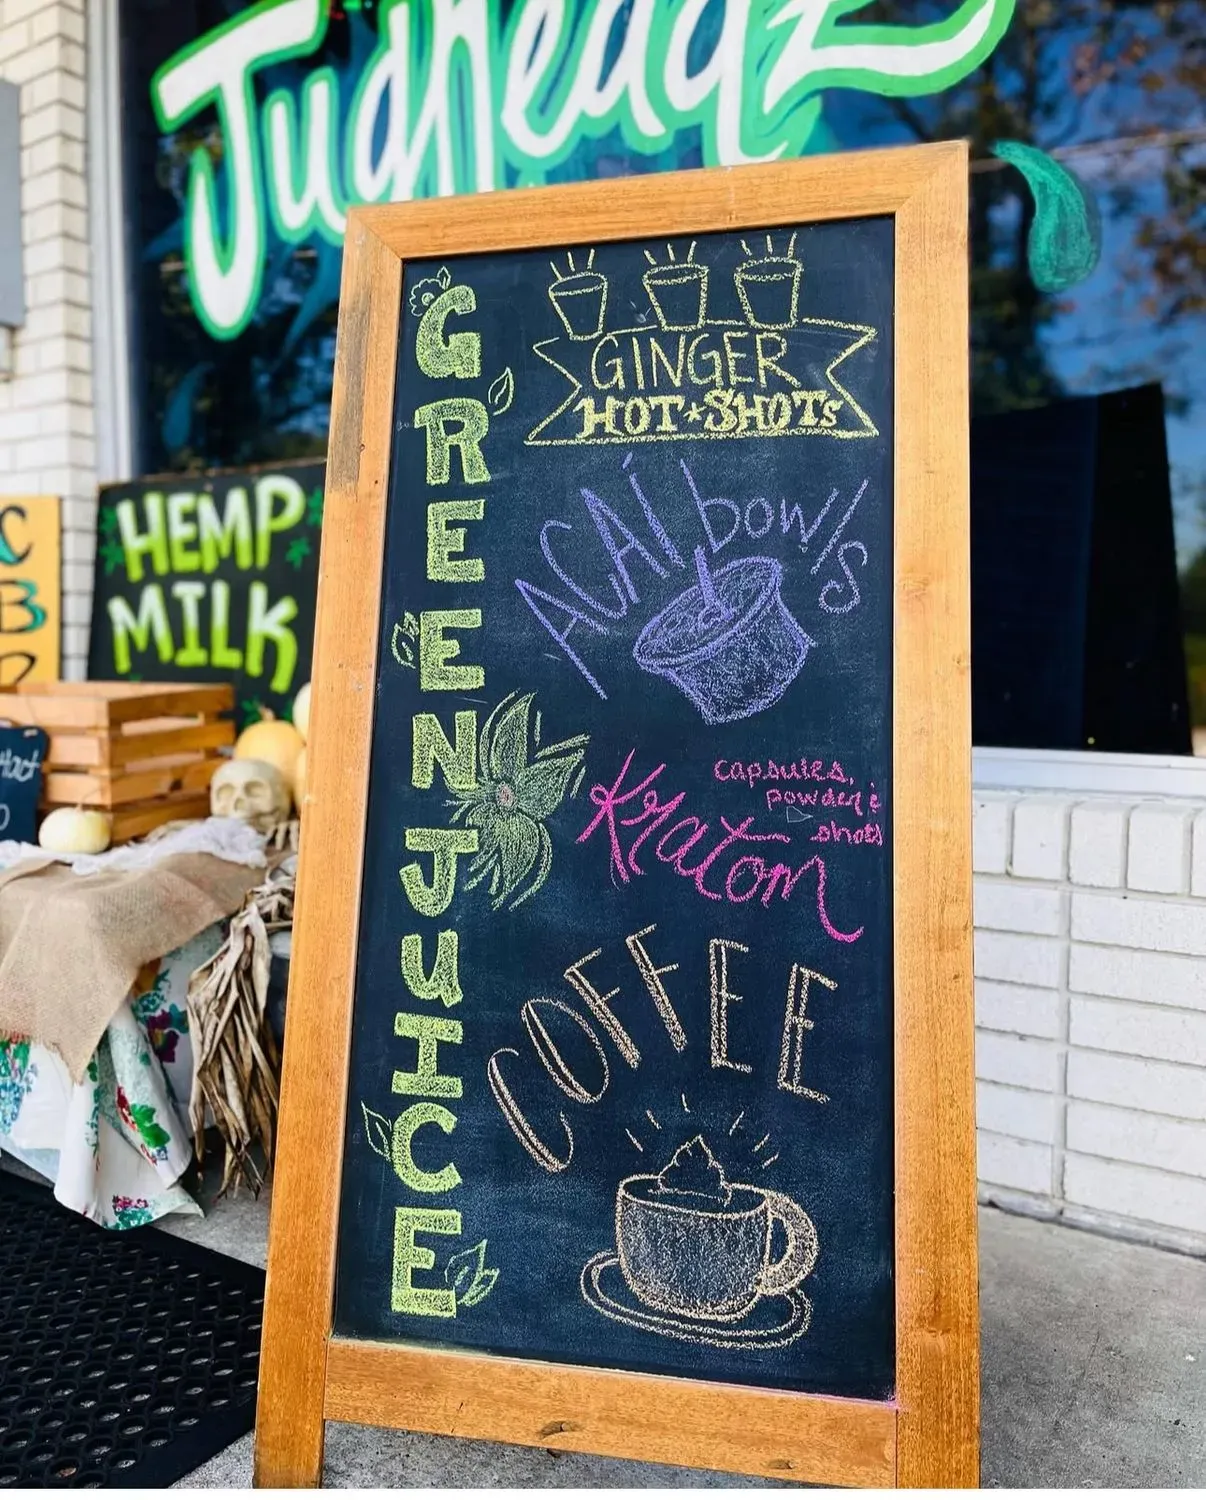 Judheadz
GREEN JUICE
GINGER
HOT*SHOTs
ACAÍ bowls
Kratom
capsules,
powder &
shots
COFFEE
HEMP
MILK
C
B
D